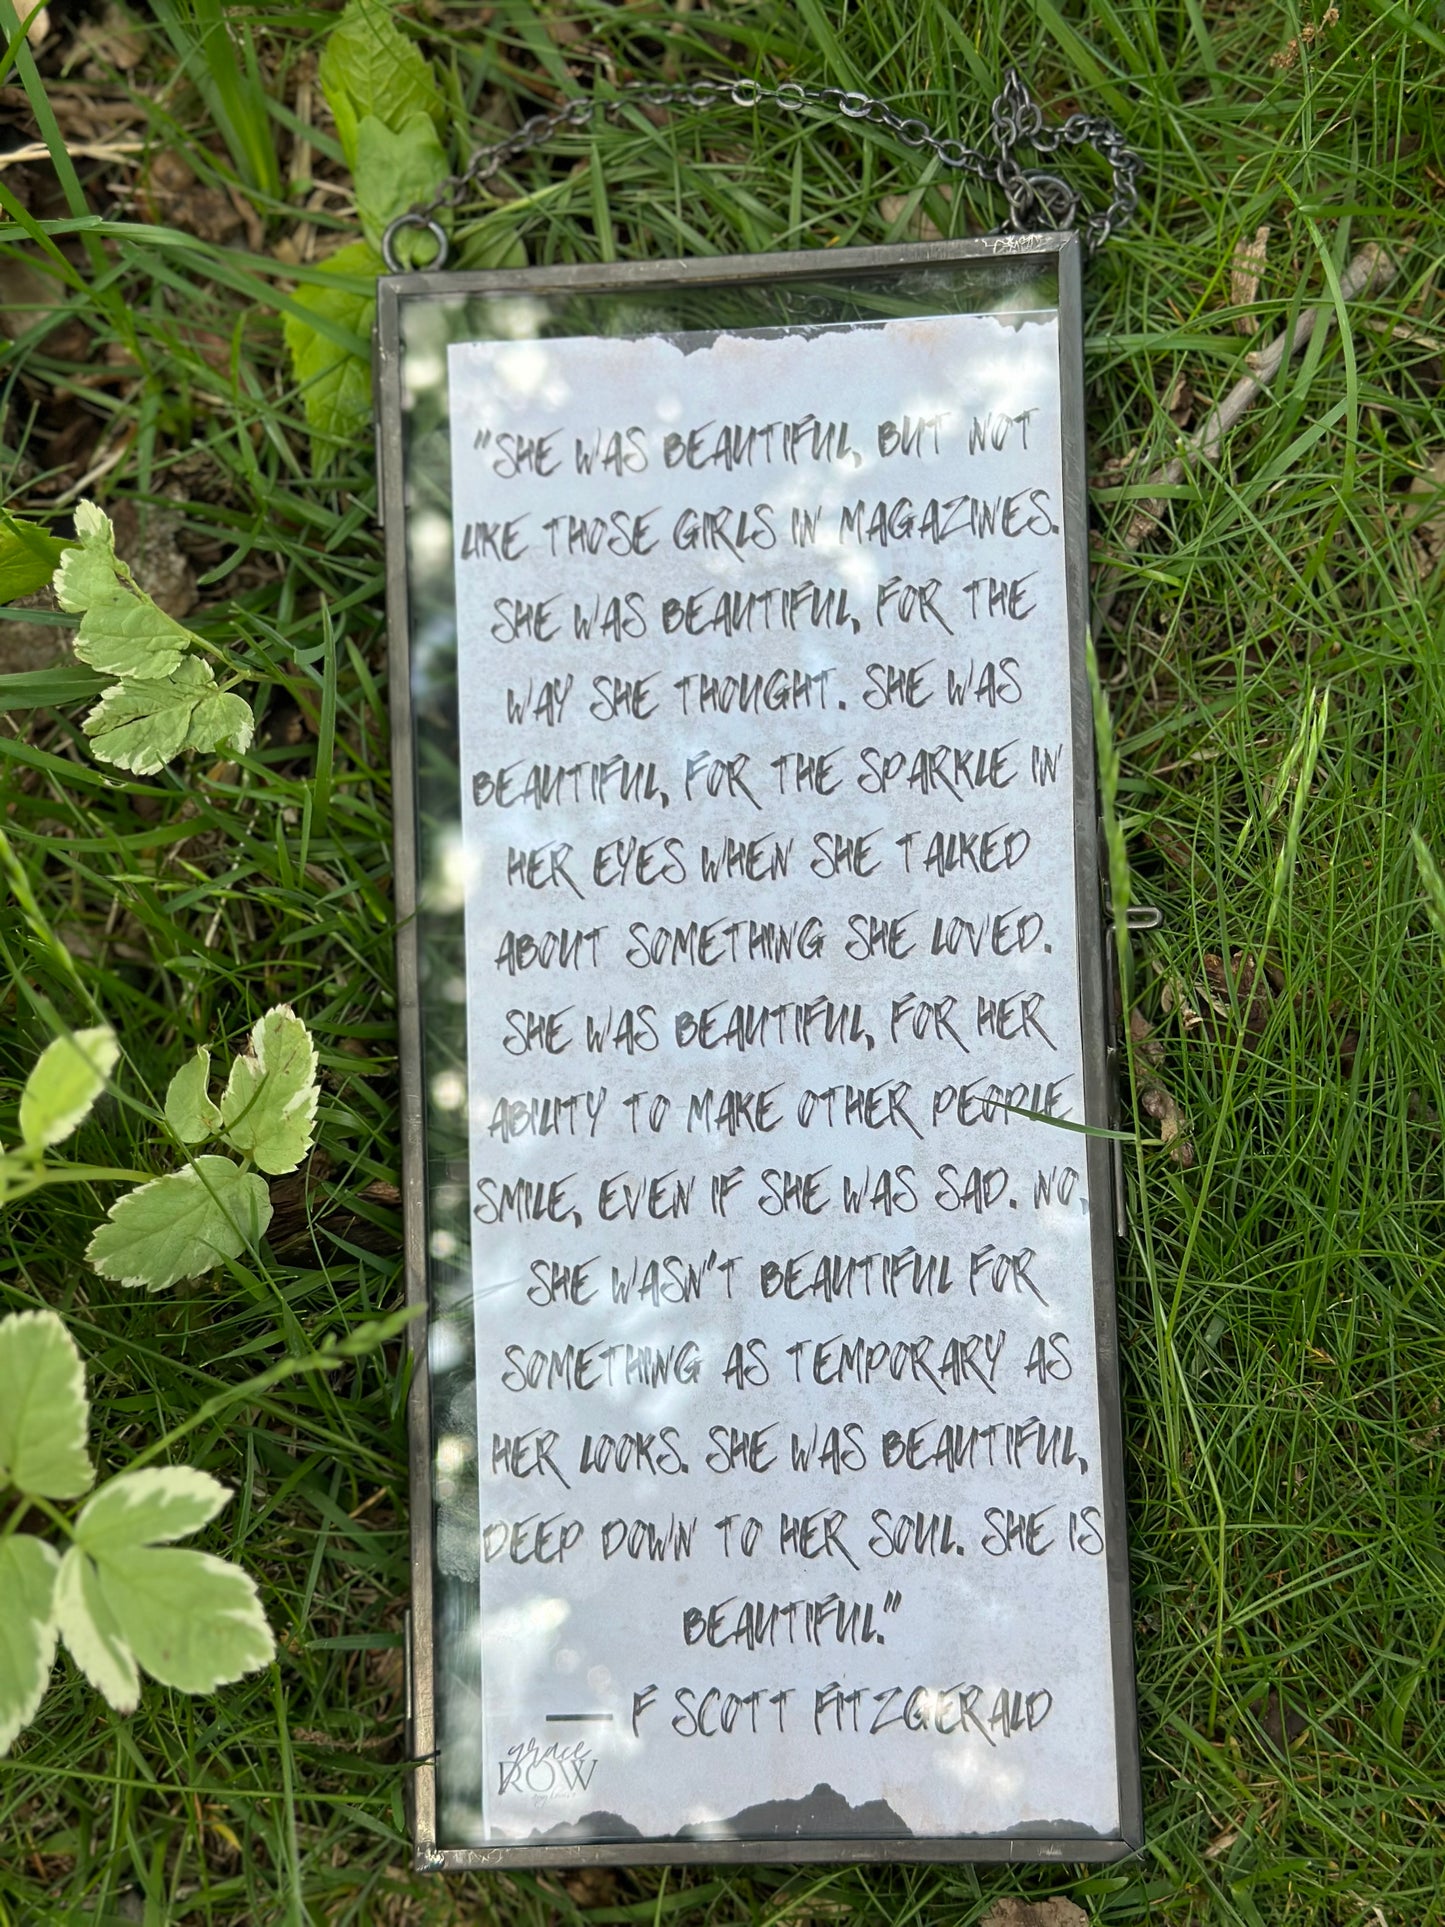 "SHE WAS BEAUTIFUL, BUT NOT
LIKE THOSE GIRLS IN MAGAZINES.
SHE WAS BEAUTIFUL, FOR THE
WAY SHE THOUGHT. SHE WAS
BEAUTIFUL, FOR THE SPARKLE IN
HER EYES WHEN SHE TALKED
ABOUT SOMETHING SHE LOVED.
SHE WAS BEAUTIFUL, FOR HER
ABILITY TO MAKE OTHER PEOPLE
SMILE, EVEN IF SHE WAS SAD. NO,
SHE WASN'T BEAUTIFUL FOR
SOMETHING AS TEMPORARY AS
HER LOOKS. SHE WAS BEAUTIFUL,
DEEP DOWN TO HER SOUL. SHE IS
BEAUTIFUL."
— F SCOTT FITZGERALD
grace
ROW